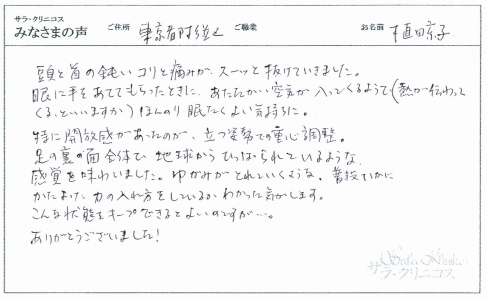 サラ・クリニコス
みなさまの声 ご住所 東京都杉並区 ご職業 お名前 植田京子
頭と首の鈍いコリと痛みが、スーッと抜けていきました。
眼に手をあててもらったときに、あたたかい空気が入ってくるようで(熱が伝わって
くる、といいますか)ほんのり眠たくよい気持ちに。
特に開放感があったのが、立つ姿勢での重心調整。
足の裏の面全体で地球からひっぱられているような、
感覚を味わいました。ゆがみがとれていくような。普段いかに
かたよった力の入れ方をしているかわかった気がします。
こんな状態をキープできるとよいのですが…。
ありがとうございました!
サラ・クリニコス